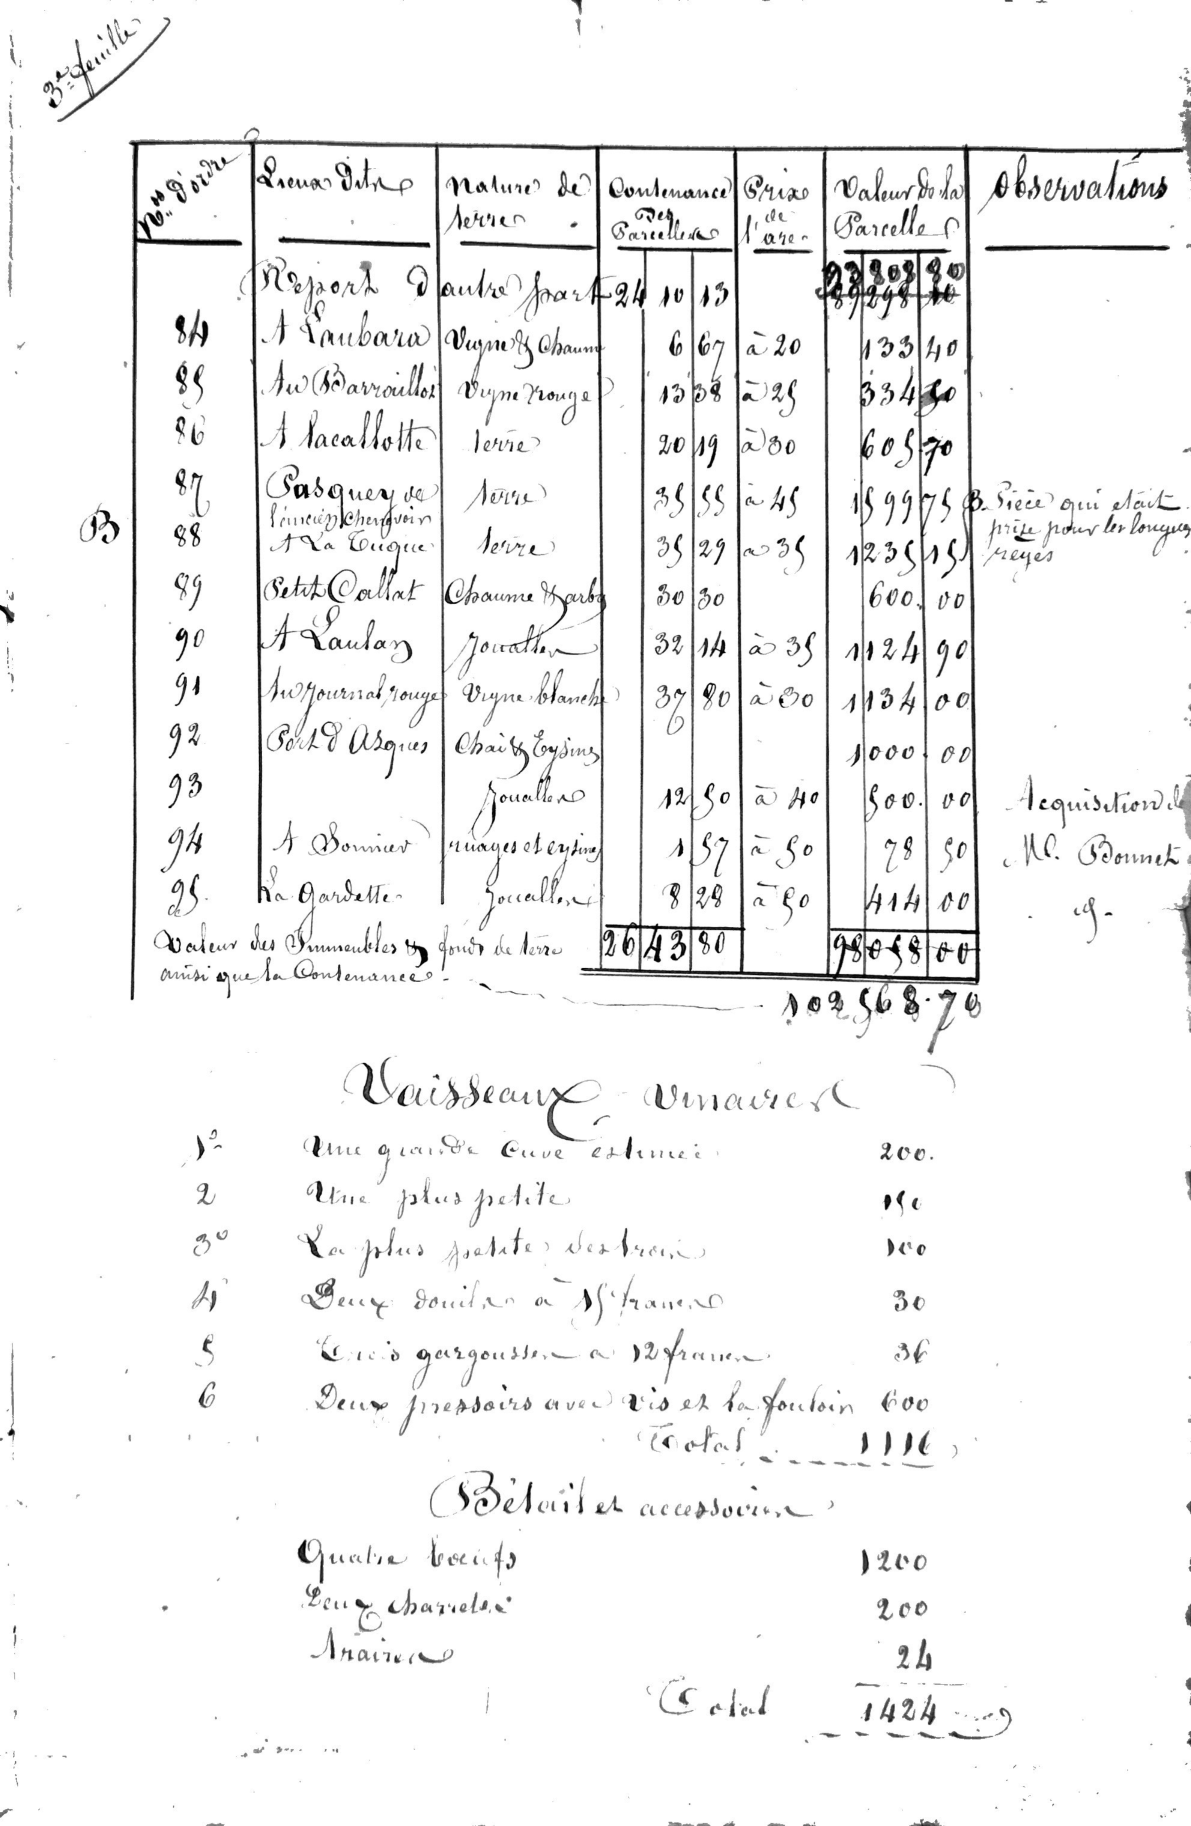 3e feuille
Nos d'ordre | Lieux Dits | Nature de terre | Contenance Des Parcelles | Prix de l'are | Valeur de la Parcelle | Observations
Report d'autre part 24 10 13 | 93 808 80
89 298 10
84 A Laubara Vigne & Chaume 6 67 à 20 133 40
85 Au Barraillot Vigne rouge 13 38 à 25 334 50
86 A lacallotte terre 20 19 à 30 605 70
87 Pasquey de l'ancien chenevoir terre 35 55 à 45 1599 75 B. Pièce qui était
B 88 A La Tuque terre 35 29 a 35 1235 15 prise pour les longues reges
89 Petit Callat Chaume & arbs 30 30 600. 00
90 A Laulan Joualles 32 14 à 35 1124 90
91 Au Journal rouge Vigne blanche 37 80 à 30 1134 00
92 Port d'Asques Chai & Eysines 1000. 00
93 Joualles 12 50 à 40 500. 00 Acquisition de
94 A Sonnier ruages et eysines 1 57 à 50 78 50 M. Bonnet
95. La Gardette Joualles 8 28 à 50 414 00
Valeur des Immeubles & fonds de terre 26 43 80 98 058 00
ainsi que la Contenance
102568.70
Vaisseaux Vinaires
1o Une grande Cuve estimée 200.
2 Une plus petite 150
3o La plus petite des trois 100
4 Deux douils à 15 francs 30
5 Trois gargousses a 12 francs 36
6 Deux pressoirs avec vis et la fouloir 600
Total 1116
Bétail et accessoires
Quatre bœufs 1200
Deux charretes 200
Araires 24
Total 1424